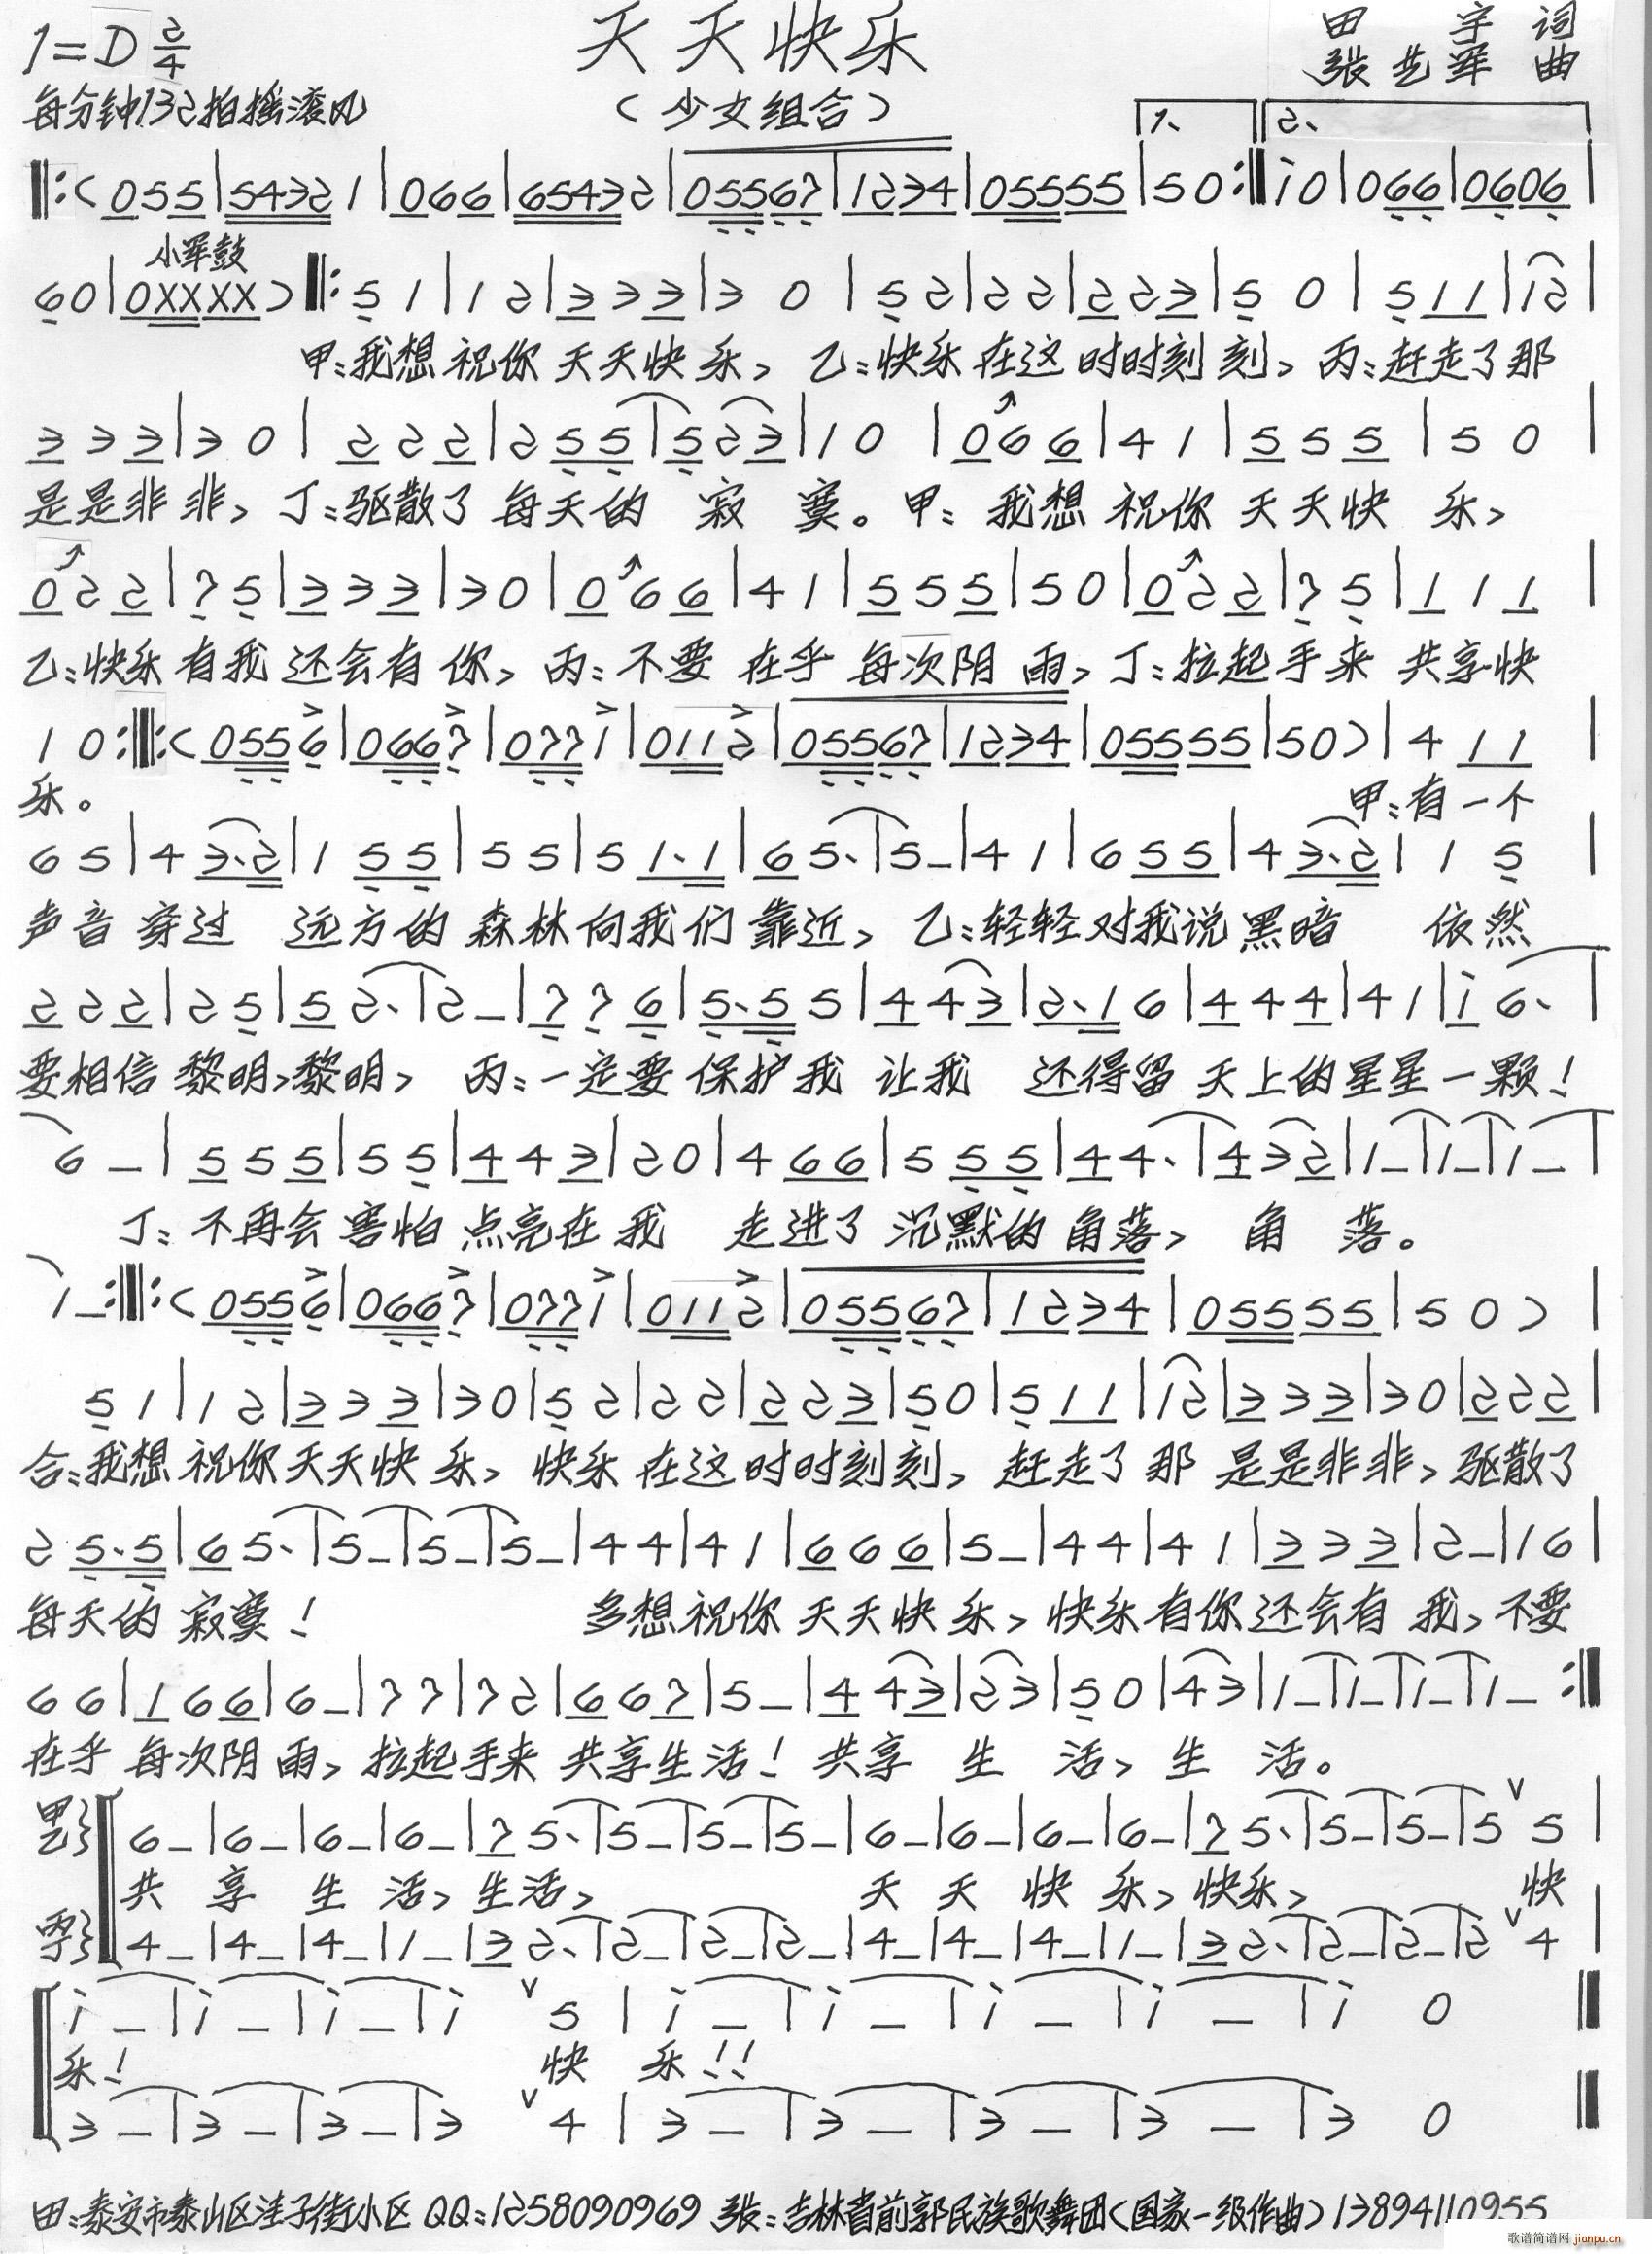 1=D 2/4
天天快乐
田 宇 词
张艺军 曲
每分钟132拍摇滚风
(少女组合)
1、 2、
‖:(055|54321|066|65432|05567|1234|05555|50:‖i0|066|0606|
小军鼓
60|0XXXX)‖:51|12|333|30|52|22|223|50|511|12|
甲:我想祝你天天快乐、乙:快乐在这时时刻刻、丙:赶走了那
333|30|222|255|523|10|066|41|555|50|
是是非非、丁:驱散了每天的寂寞。甲:我想祝你天天快乐、
022|75|333|30|066|41|555|50|022|75|111|
乙:快乐有我还会有你、丙:不要在乎每次阴雨、丁:拉起手来共享快
10:‖:(0556|0667|0771|0112|05567|1234|05555|50)|411|
乐。 甲:有一个
65|43.2|155|55|51.1|65.|5-|41|655|43.2|15|
声音穿过远方的森林向我们靠近、乙:轻轻对我说黑暗依然
222|25|52.|2-|776|5.55|443|2.16|444|41|i6.|
要相信黎明、黎明、丙:一定要保护我让我还得留天上的星星一颗!
6-|555|55|443|20|466|555|44.|432|1-|1-|1-|
丁:不再会害怕点亮在我走进了沉默的角落、角落。
1-:‖:(0556|0667|0771|0112|05567|1234|05555|50)|
51|12|333|30|52|22|223|50|511|12|333|30|222|
合:我想祝你天天快乐、快乐在这时时刻刻、赶走了那是是非非、驱散了
25.5|65.|5-|5-|5-|44|41|666|5-|44|41|333|2-|16|
每天的寂寞! 多想祝你天天快乐、快乐有你还会有我、不要
66|166|6-|77|72|667|5-|443|23|50|43|1-|1-|1-|1-:‖
在乎每次阴雨、拉起手来共享生活!共享生活、生活。
甲乙} 6-|6-|6-|6-|75.|5-|5-|5-|6-|6-|6-|6-|75.|5-|5-|5∨5|
共享生活、生活、 天天快乐、快乐、 快
丙丁} 4-|4-|4-|1-|32.|2-|2-|2-|4-|4-|4-|1-|32.|2-|2-|2∨4|
i-|i-|i-|i∨5|i-|i-|i-|i-|i0‖
乐! 快乐!!
3-|3-|3-|3∨4|3-|3-|3-|3-|30‖
田:泰安市泰山区洼子街小区QQ:1258090969 张:吉林省前郭民族歌舞团(国家一级作曲)13894110955
歌谱简谱网 jianpu.cn